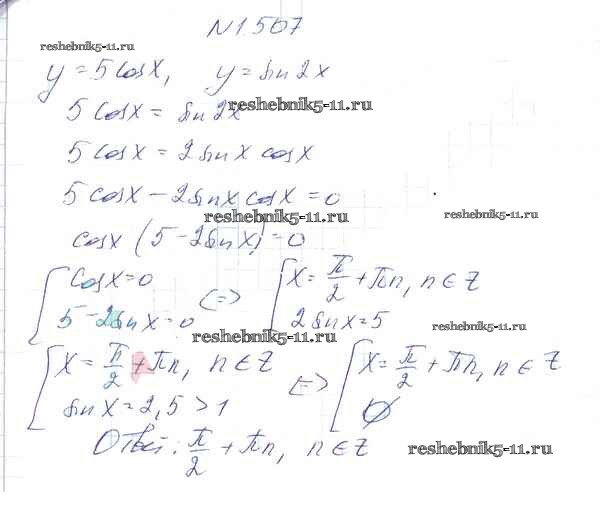 N1507
reshebnik5-11.ru
y = 5cosx, y = sin2x
5cosx = sin2x
reshebnik5-11.ru
5cosx = 2sinx cosx
5cosx - 2sinx cosx = 0
reshebnik5-11.ru reshebnik5-11.ru
cosx(5 - 2sinx) = 0
[cosx = 0 <=> [x = π/2 + πn, n ∈ Z
5 - 2sinx = 0 2sinx = 5
reshebnik5-11.ru reshebnik5-11.ru
[x = π/2 + πn, n ∈ Z <=> [x = π/2 + πn, n ∈ Z
sinx = 2,5 > 1 ∅
Ответ: π/2 + πn, n ∈ Z
reshebnik5-11.ru